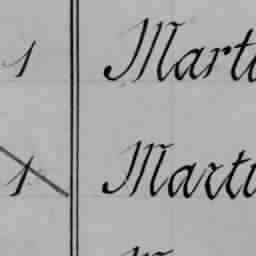 1 Marti
1 Marti